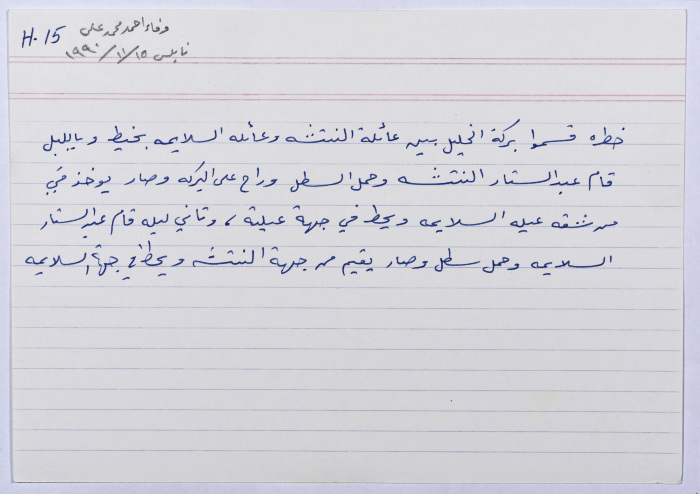 H. 15
وفاء احمد محمد علي
نابلس ١٩٩٠/١١/١٥
خطره قسموا بركة الخليل بين عائلة النتشه وعائله السلايمه بخيط وبالليل
قام عبدالستار النتشه وحمل السطل وراح على البركه وصار يوخذ مَيّ
من شقه عيله السلايمه ويحط في جهة عيلته ، وثاني ليله قام عبدالستار
السلايمه وحمل سطل وصار يقيم من جهة النتشه ويحط في جهة السلايمه